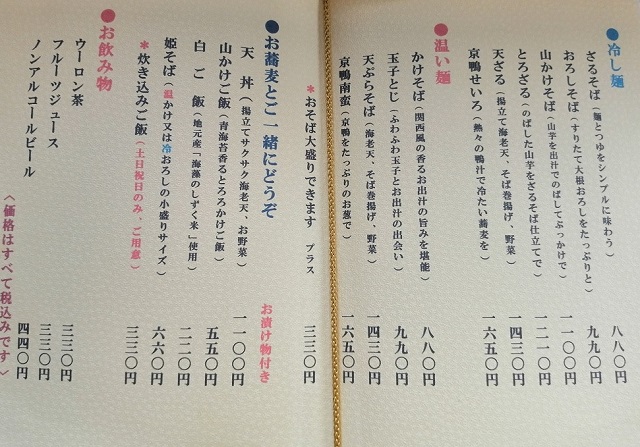 ●冷し麺
ざるそば（麺とつゆをシンプルに味わう） 八八〇円
おろしそば（すりたて大根おろしをたっぷりと） 一一〇〇円
山かけそば（山芋を出汁でのばしてぶっかけで） 一二一〇円
とろざる（のばした山芋をざるそば仕立てで） 一二一〇円
天ざる（揚立て海老天、そば巻揚げ、野菜） 一四三〇円
京鴨せいろ（熱々の鴨汁で冷たい蕎麦を） 一六五〇円
●温い麺
かけそば（関西風の香るお出汁の旨みを堪能） 八八〇円
玉子とじ（ふわふわ玉子とお出汁の出会い） 九九〇円
天ぷらそば（海老天、そば巻揚げ、野菜） 一四三〇円
京鴨南蛮（京鴨をたっぷりのお葱で） 一六五〇円
*おそば大盛りできます プラス 三三〇円
●お蕎麦とご一緒にどうぞ お漬け物付き
天丼（揚立てサクサク海老天、お野菜） 一一〇〇円
山かけご飯（青海苔香るとろろかけご飯） 五五〇円
白ご飯（地元産「海藻のしずく米」使用） 二二〇円
姫そば（温かけ又は冷おろしの小盛りサイズ） 六六〇円
*炊き込みご飯（土日祝日のみ、ご用意） 三三〇円
●お飲み物
ウーロン茶 三三〇円
フルーツジュース 三三〇円
ノンアルコールビール 四四〇円
〈価格はすべて税込みです〉